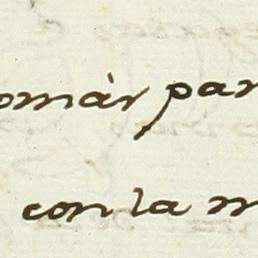 omàr par
con la m